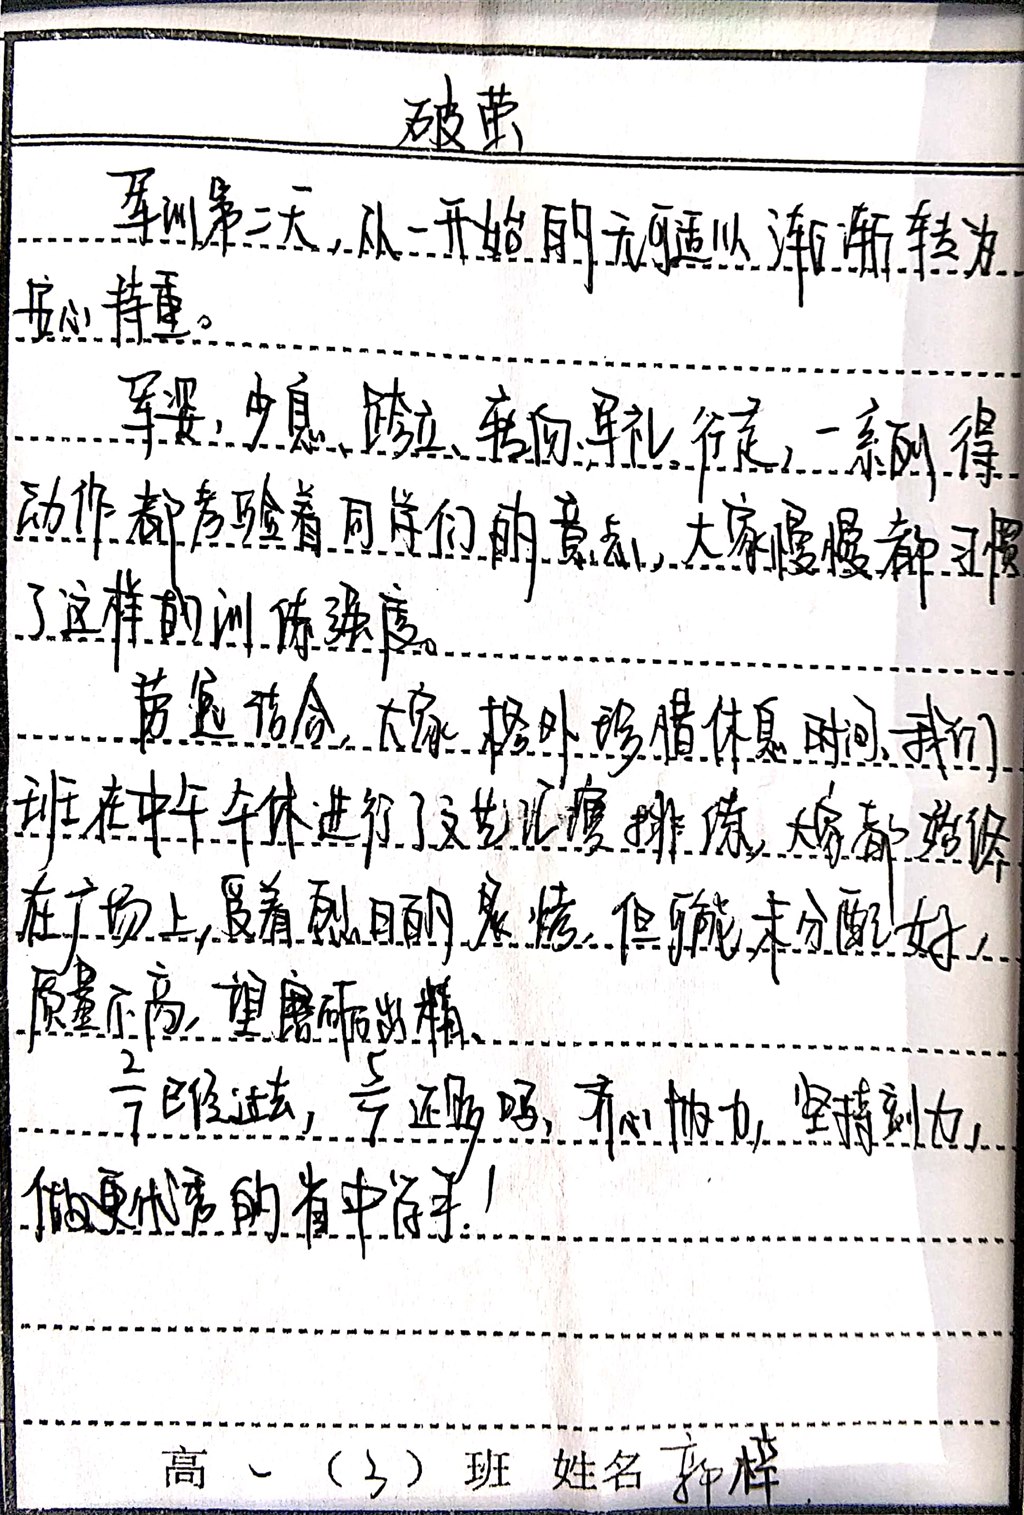 破茧
军训第二天，从一开始的无可适从渐渐转为
安心持重。
军姿，少息、跨立、转向、军礼、行走，一系列得
动作都考验着同学们的意志，大家慢慢都习惯
了这样的训练强度。
劳逸结合，大家格外珍惜休息时间、我们
班在中午午休进行了文艺汇演排练，大家都站
在广场上，受着烈日的炙烤，但可能未分配好，
质量不高，望磨砺出精、
2/7已经过去，5/7还多吗，齐心协力，坚持刻力，
做更优秀的省中学子！
高一（3）班 姓名 郭